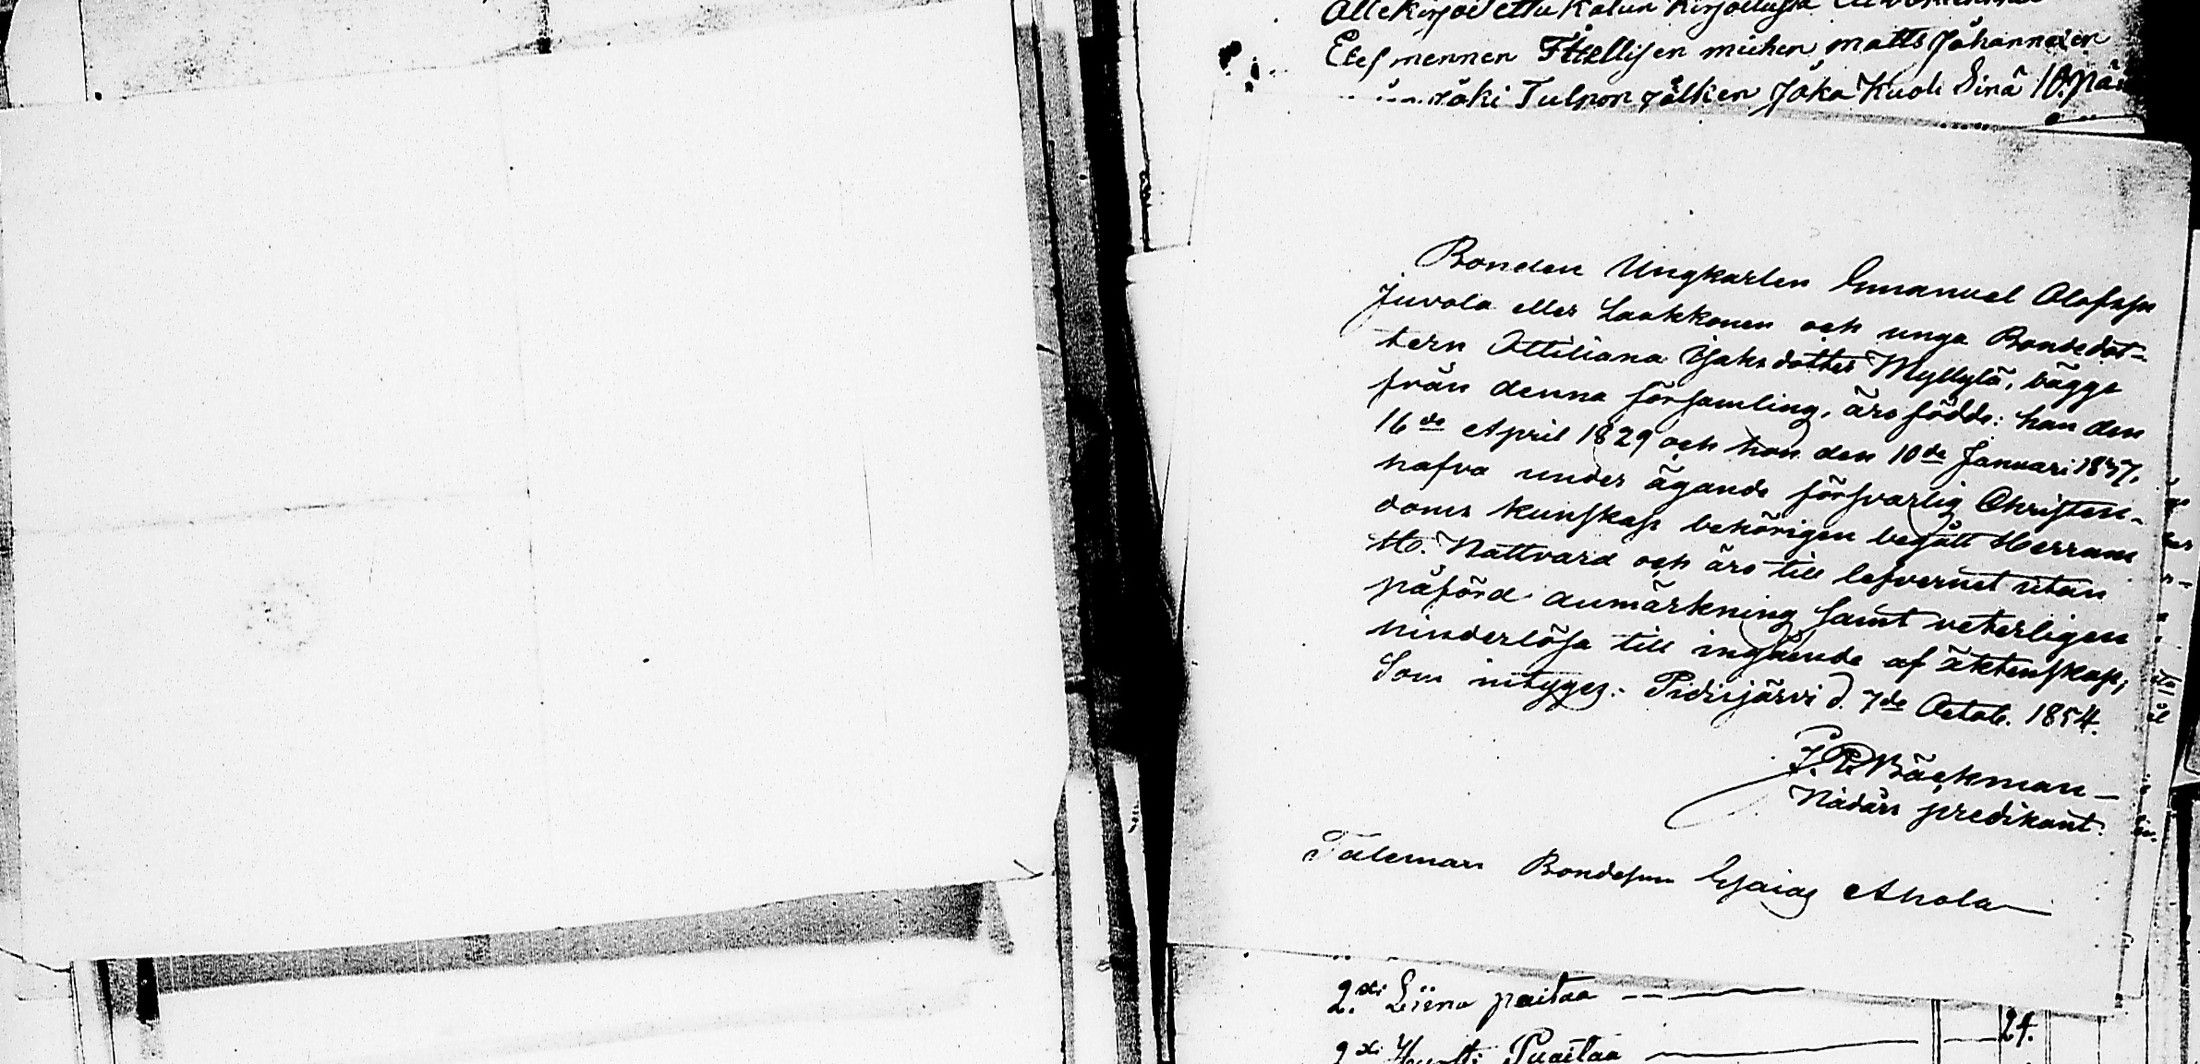 Allekirjoitettu Kalun Kirjoitusta
Edesmennen Ittellisen miehen matts Johannexen
joki Tulpon jälken Joka Kuoli Sinä 10. päi
Bonden Ungkarlen Emanuel Olofsson
Juvola eller Laakkonen och unga Bondedot-
tern Ottiliana Isaksdotter Myllylä, bägge
från denna församling, äro födde: han den
16de April 1829 och hon den 10de Januari 1837,
hafva under ägande försvarlig Christen-
doms kunskap behörigen begått Herrans
H. Nattvard och äro till lefvernet utan
påförd anmärkning samt veterligen
hinderlösa till ingående af äktenskap;
Som intygez: Pidisjärvi d. 7de Octob. 1854.
J. R. Bäckman
Nådårs predikant.
Taleman Bondeson Esaias Ahola
2.xi Liina paitaa
24.
2xi Hurtti Puaitaa